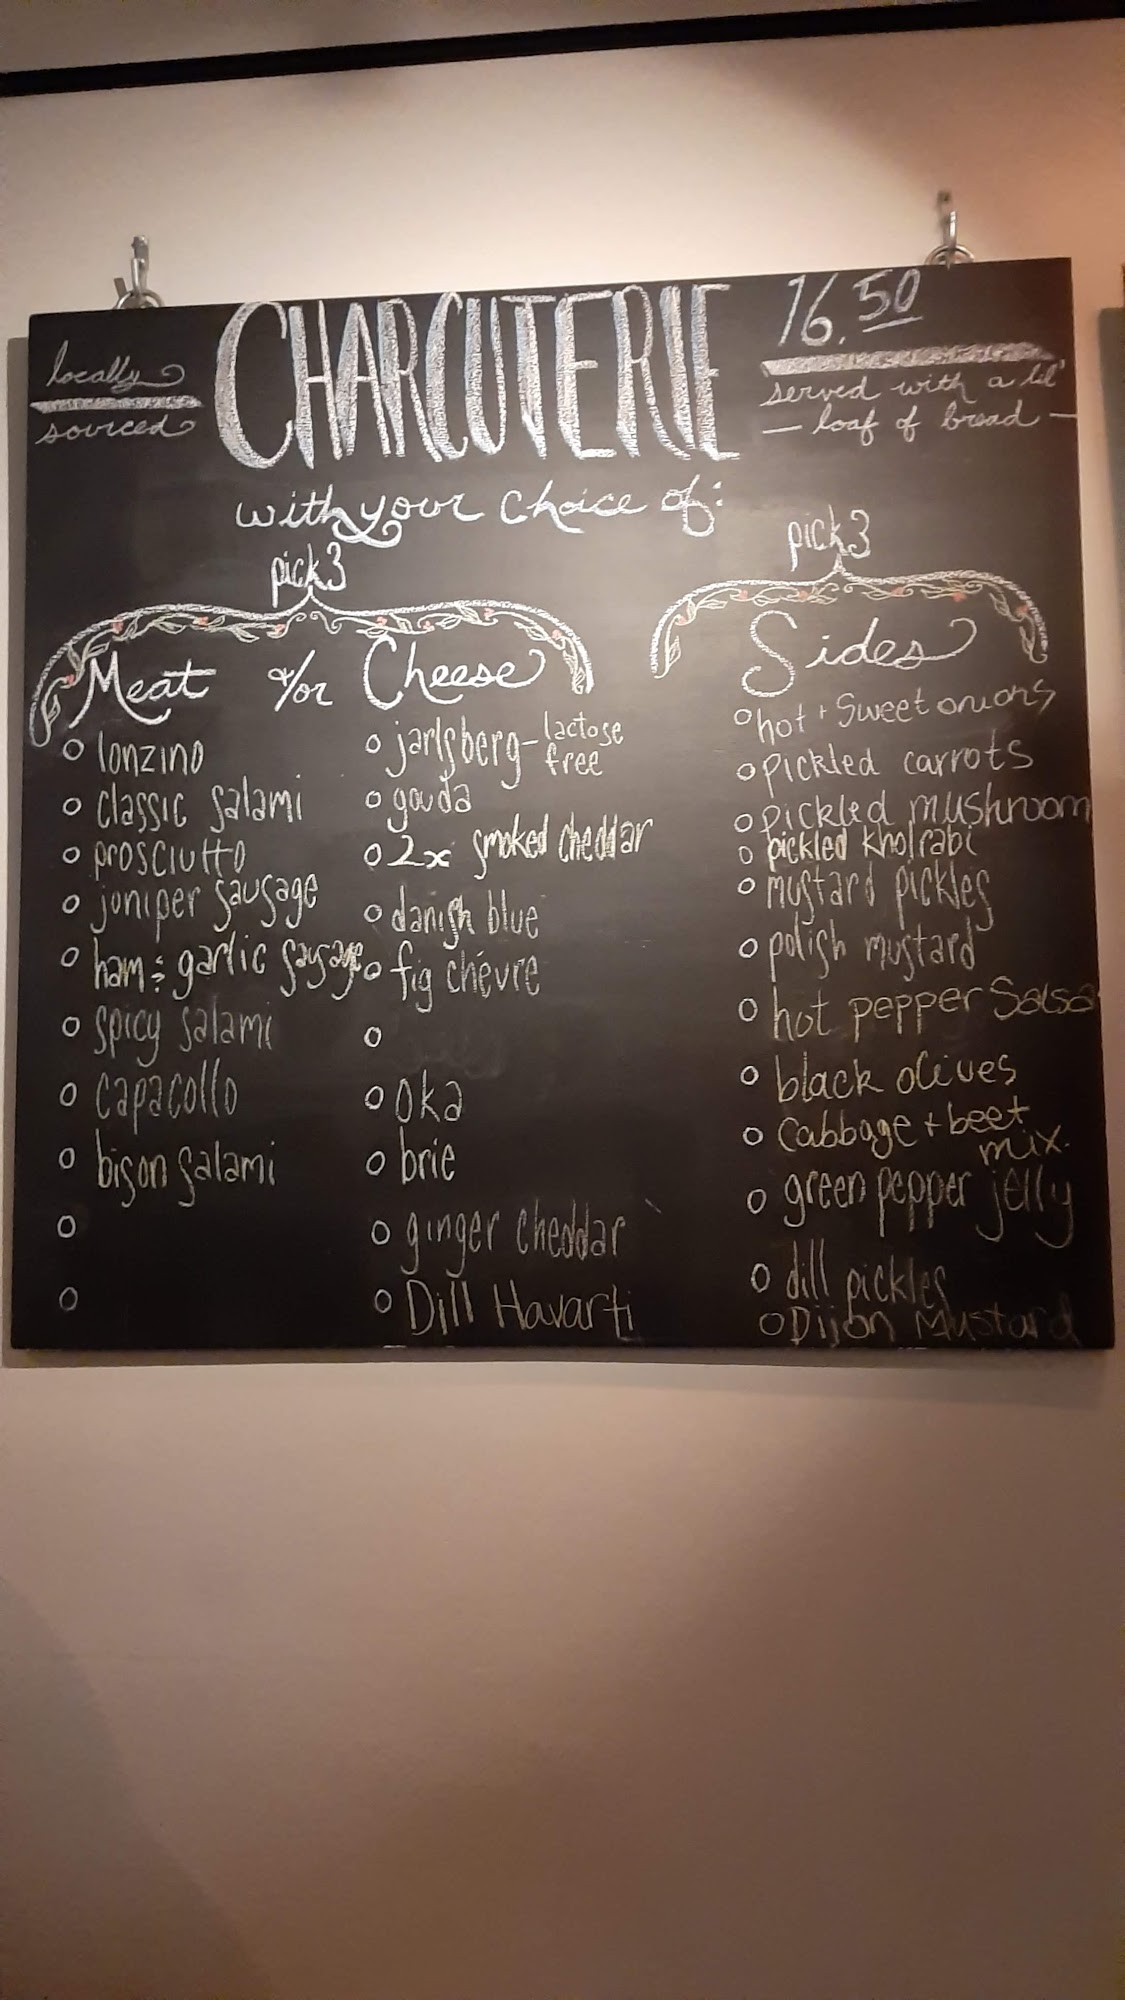 locally
sourced
CHARCUTERIE
16.50
served with a lil'
— loaf of bread —
with your choice of:
pick3
Meat &/or Cheese
lonzino
classic salami
prosciutto
juniper sausage
ham & garlic sausage
spicy salami
capacollo
bison salami
jarlsberg - lactose
free
gouda
2x smoked cheddar
danish blue
fig chévre
oka
brie
ginger cheddar
Dill Havarti
pick3
Sides
hot + Sweet onions
pickled carrots
pickled mushroom
pickled kholrabi
mustard pickles
polish mustard
hot pepper Salsa
black olives
Cabbage + beet
mix.
green pepper jelly
dill pickles
Dijon Mustard